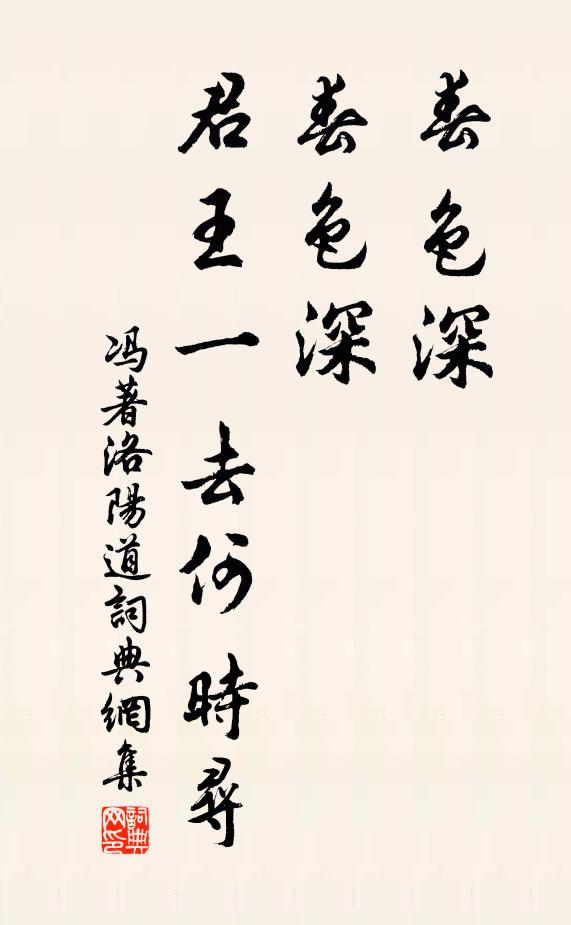 春色深
春色深
君王一去何時尋
冯著洛陽道詞典網集
詞典网印